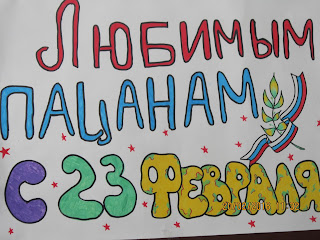 Любимым
пацанам
с 23 февраля